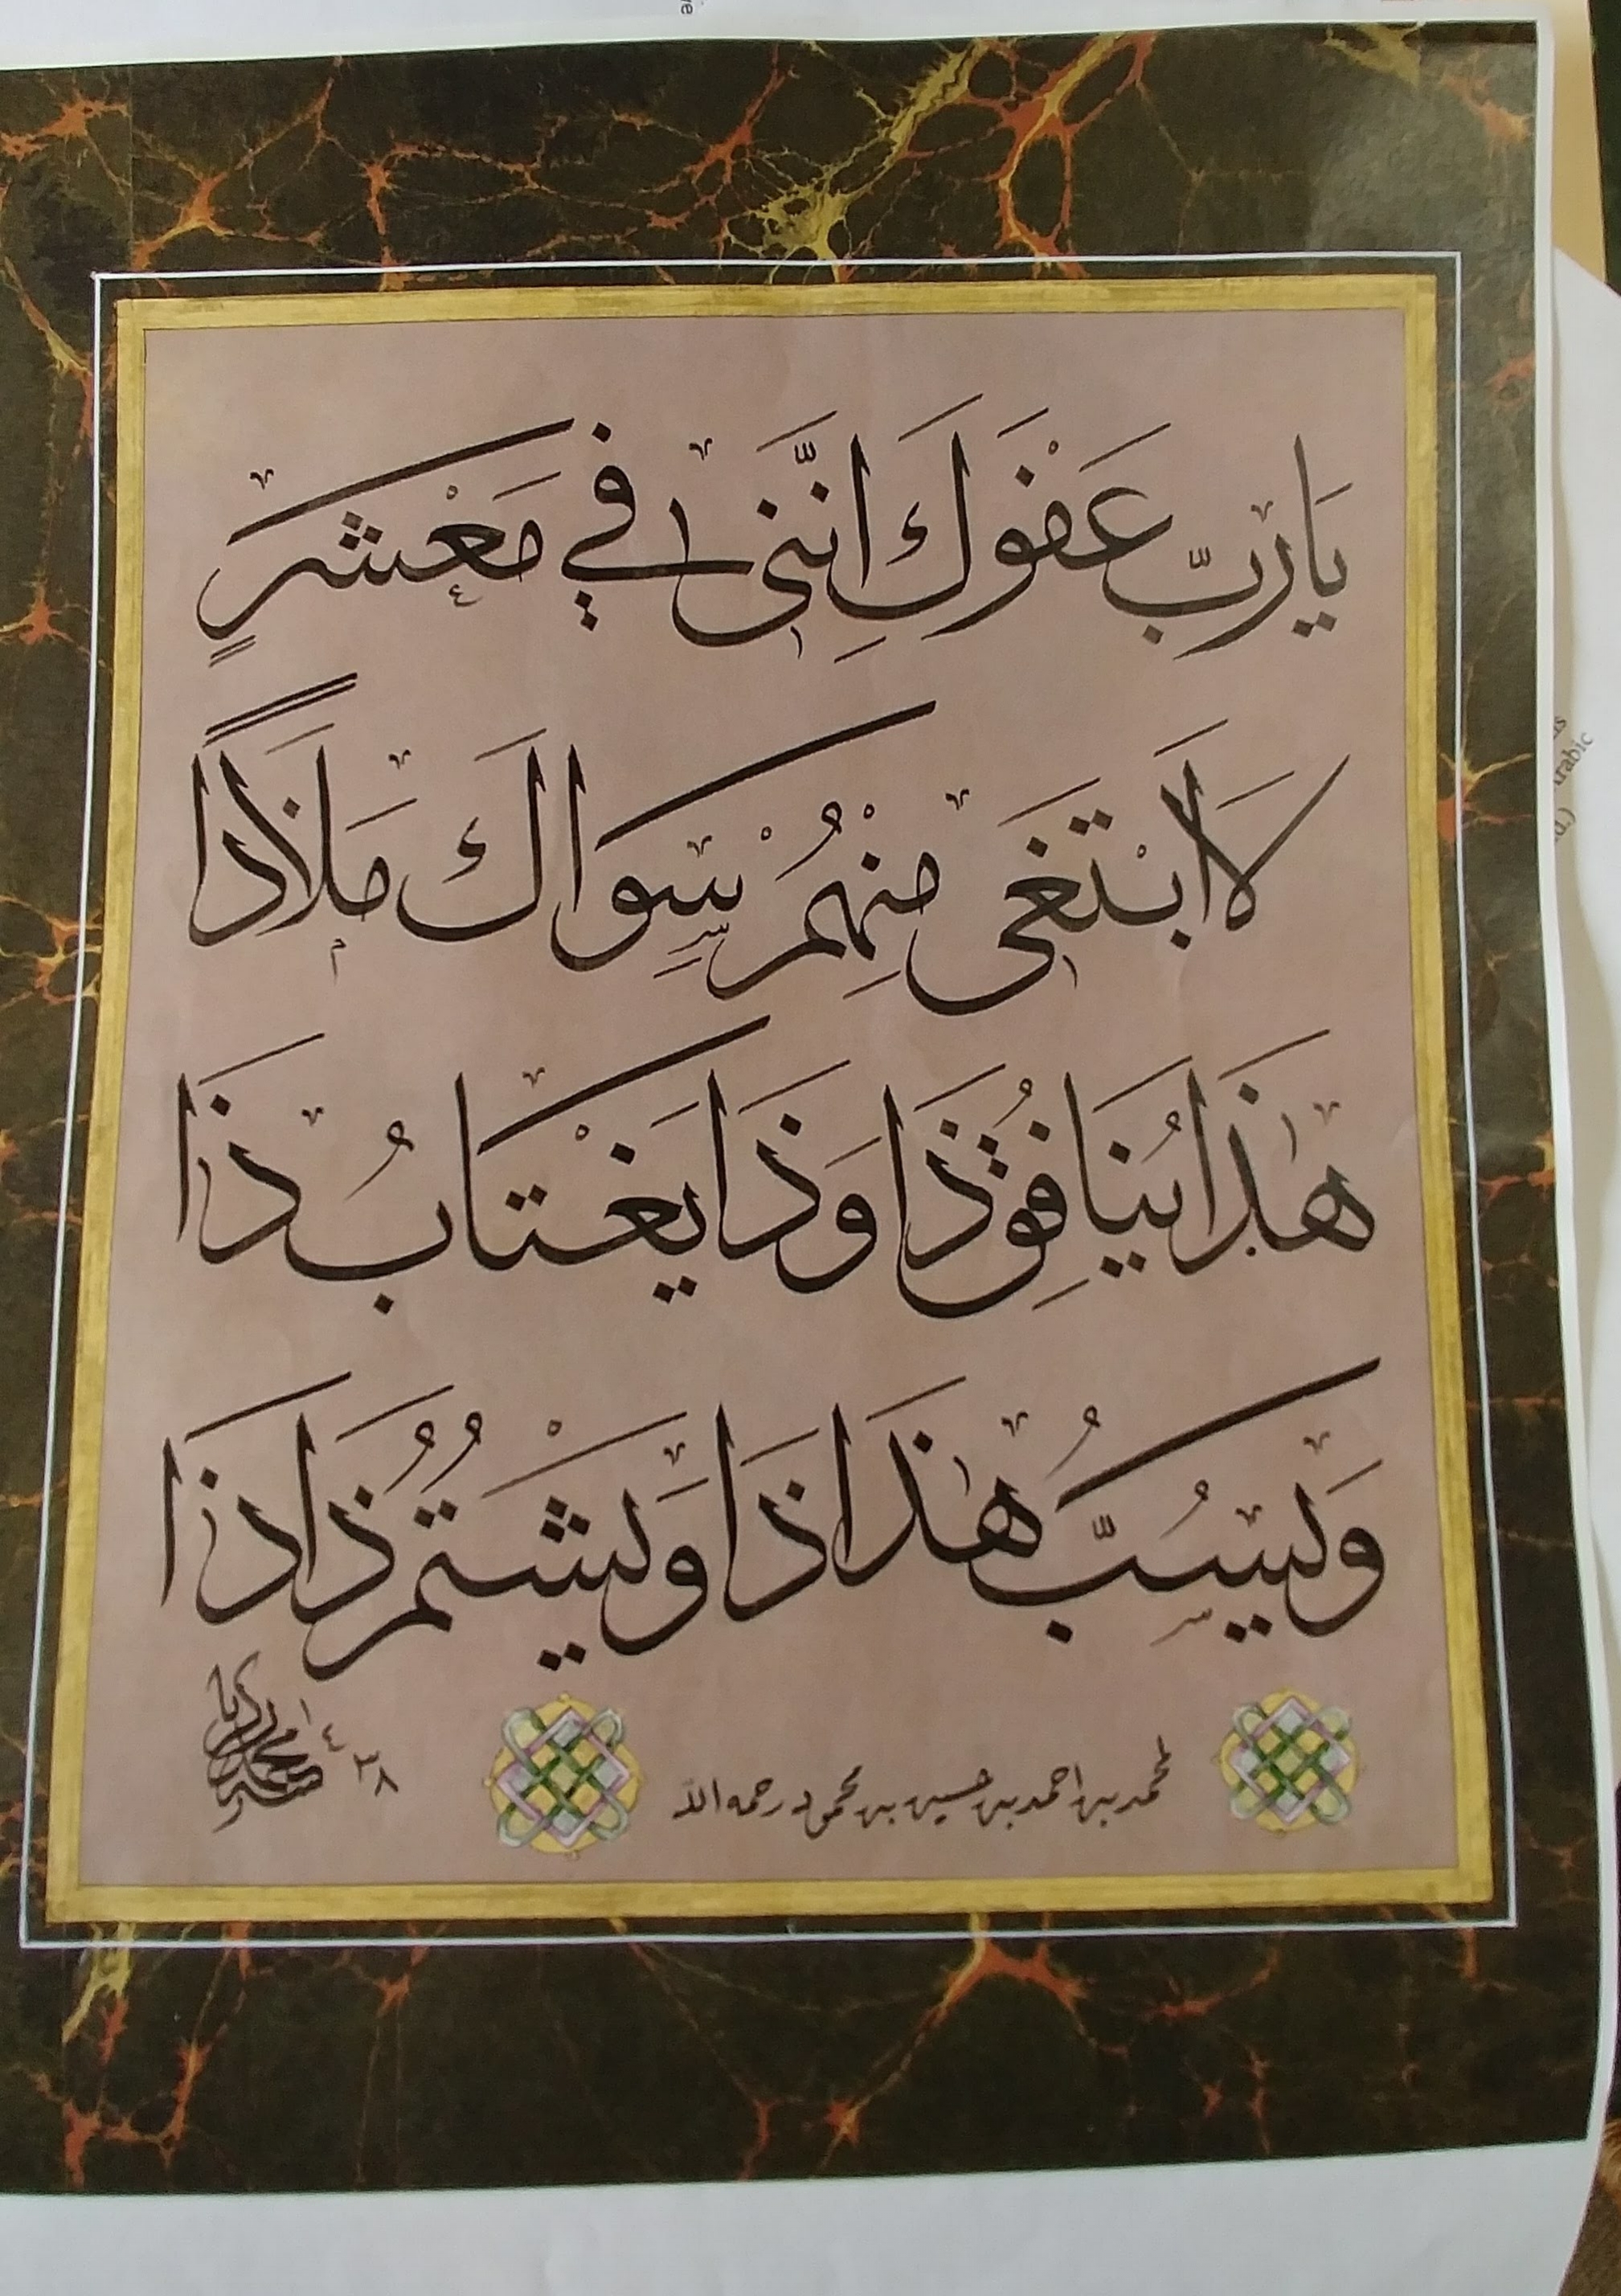 يَا رَبِّ عَفْوَكَ اِنَّنِى فِي مَعْشَرٍ
لَا اَبْتَغَى مِنْهُمْ سِوَاكَ مَلَاذًا
هٰذَا يُنَافِقُ ذَا وَذَا يَغْتَابُ ذَا
وَيَسُبُّ هٰذَا ذَا وَيَشْتُمُ ذَا ذَا
لمحمد بن احمد بن حسين بن محمود رحمه الله
١٤٣٨
rabic